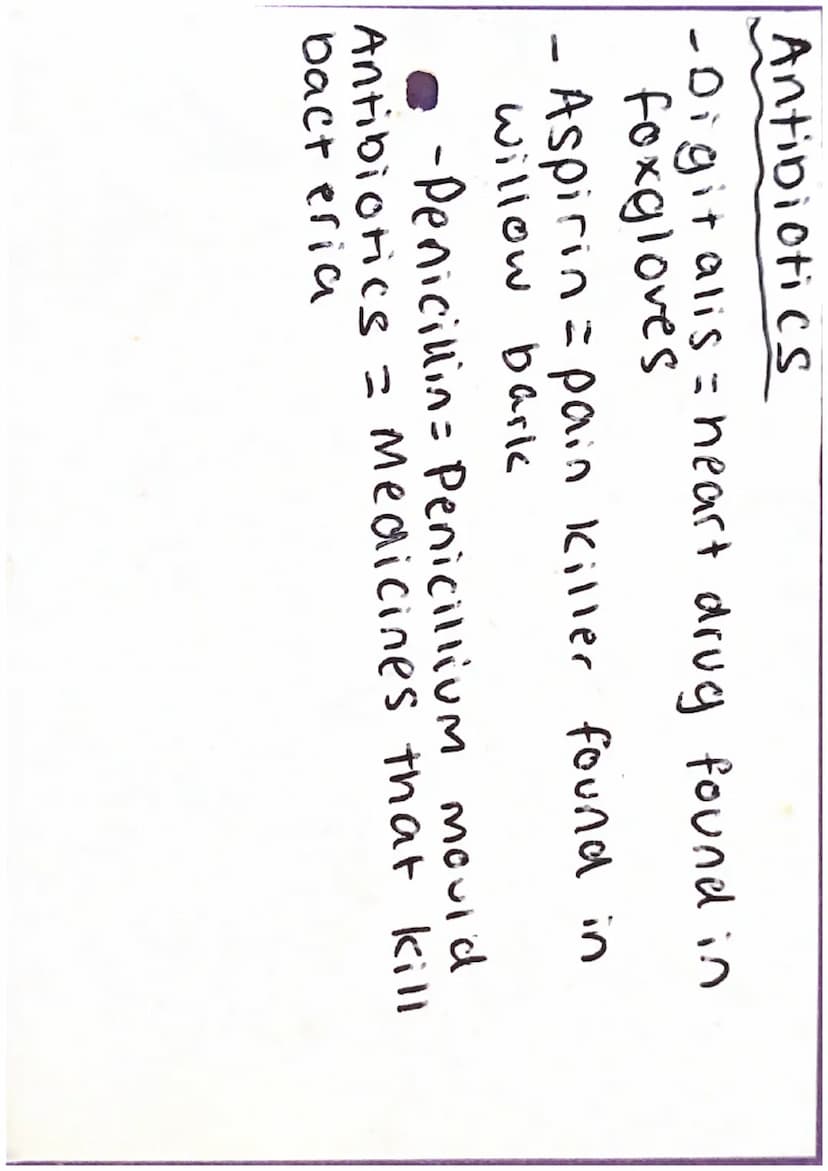 Antibiotics
- Digitalis = heart drug found in
foxgloves
- Aspirin = pain killer found in
willow bark
- Penicillin = Penicillium mould
Antibiotics = Medicines that kill
bacteria